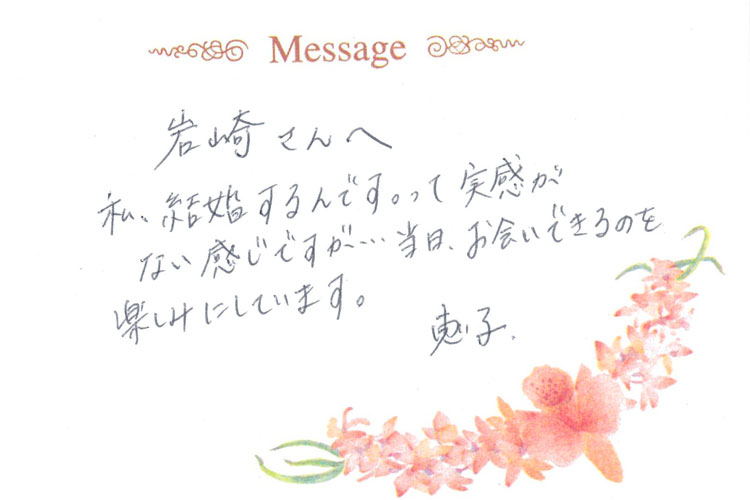 Message
岩崎さんへ
私、結婚するんです。って実感が
ない感じですが…当日、お会いできるのを
楽しみにしています。
恵子.